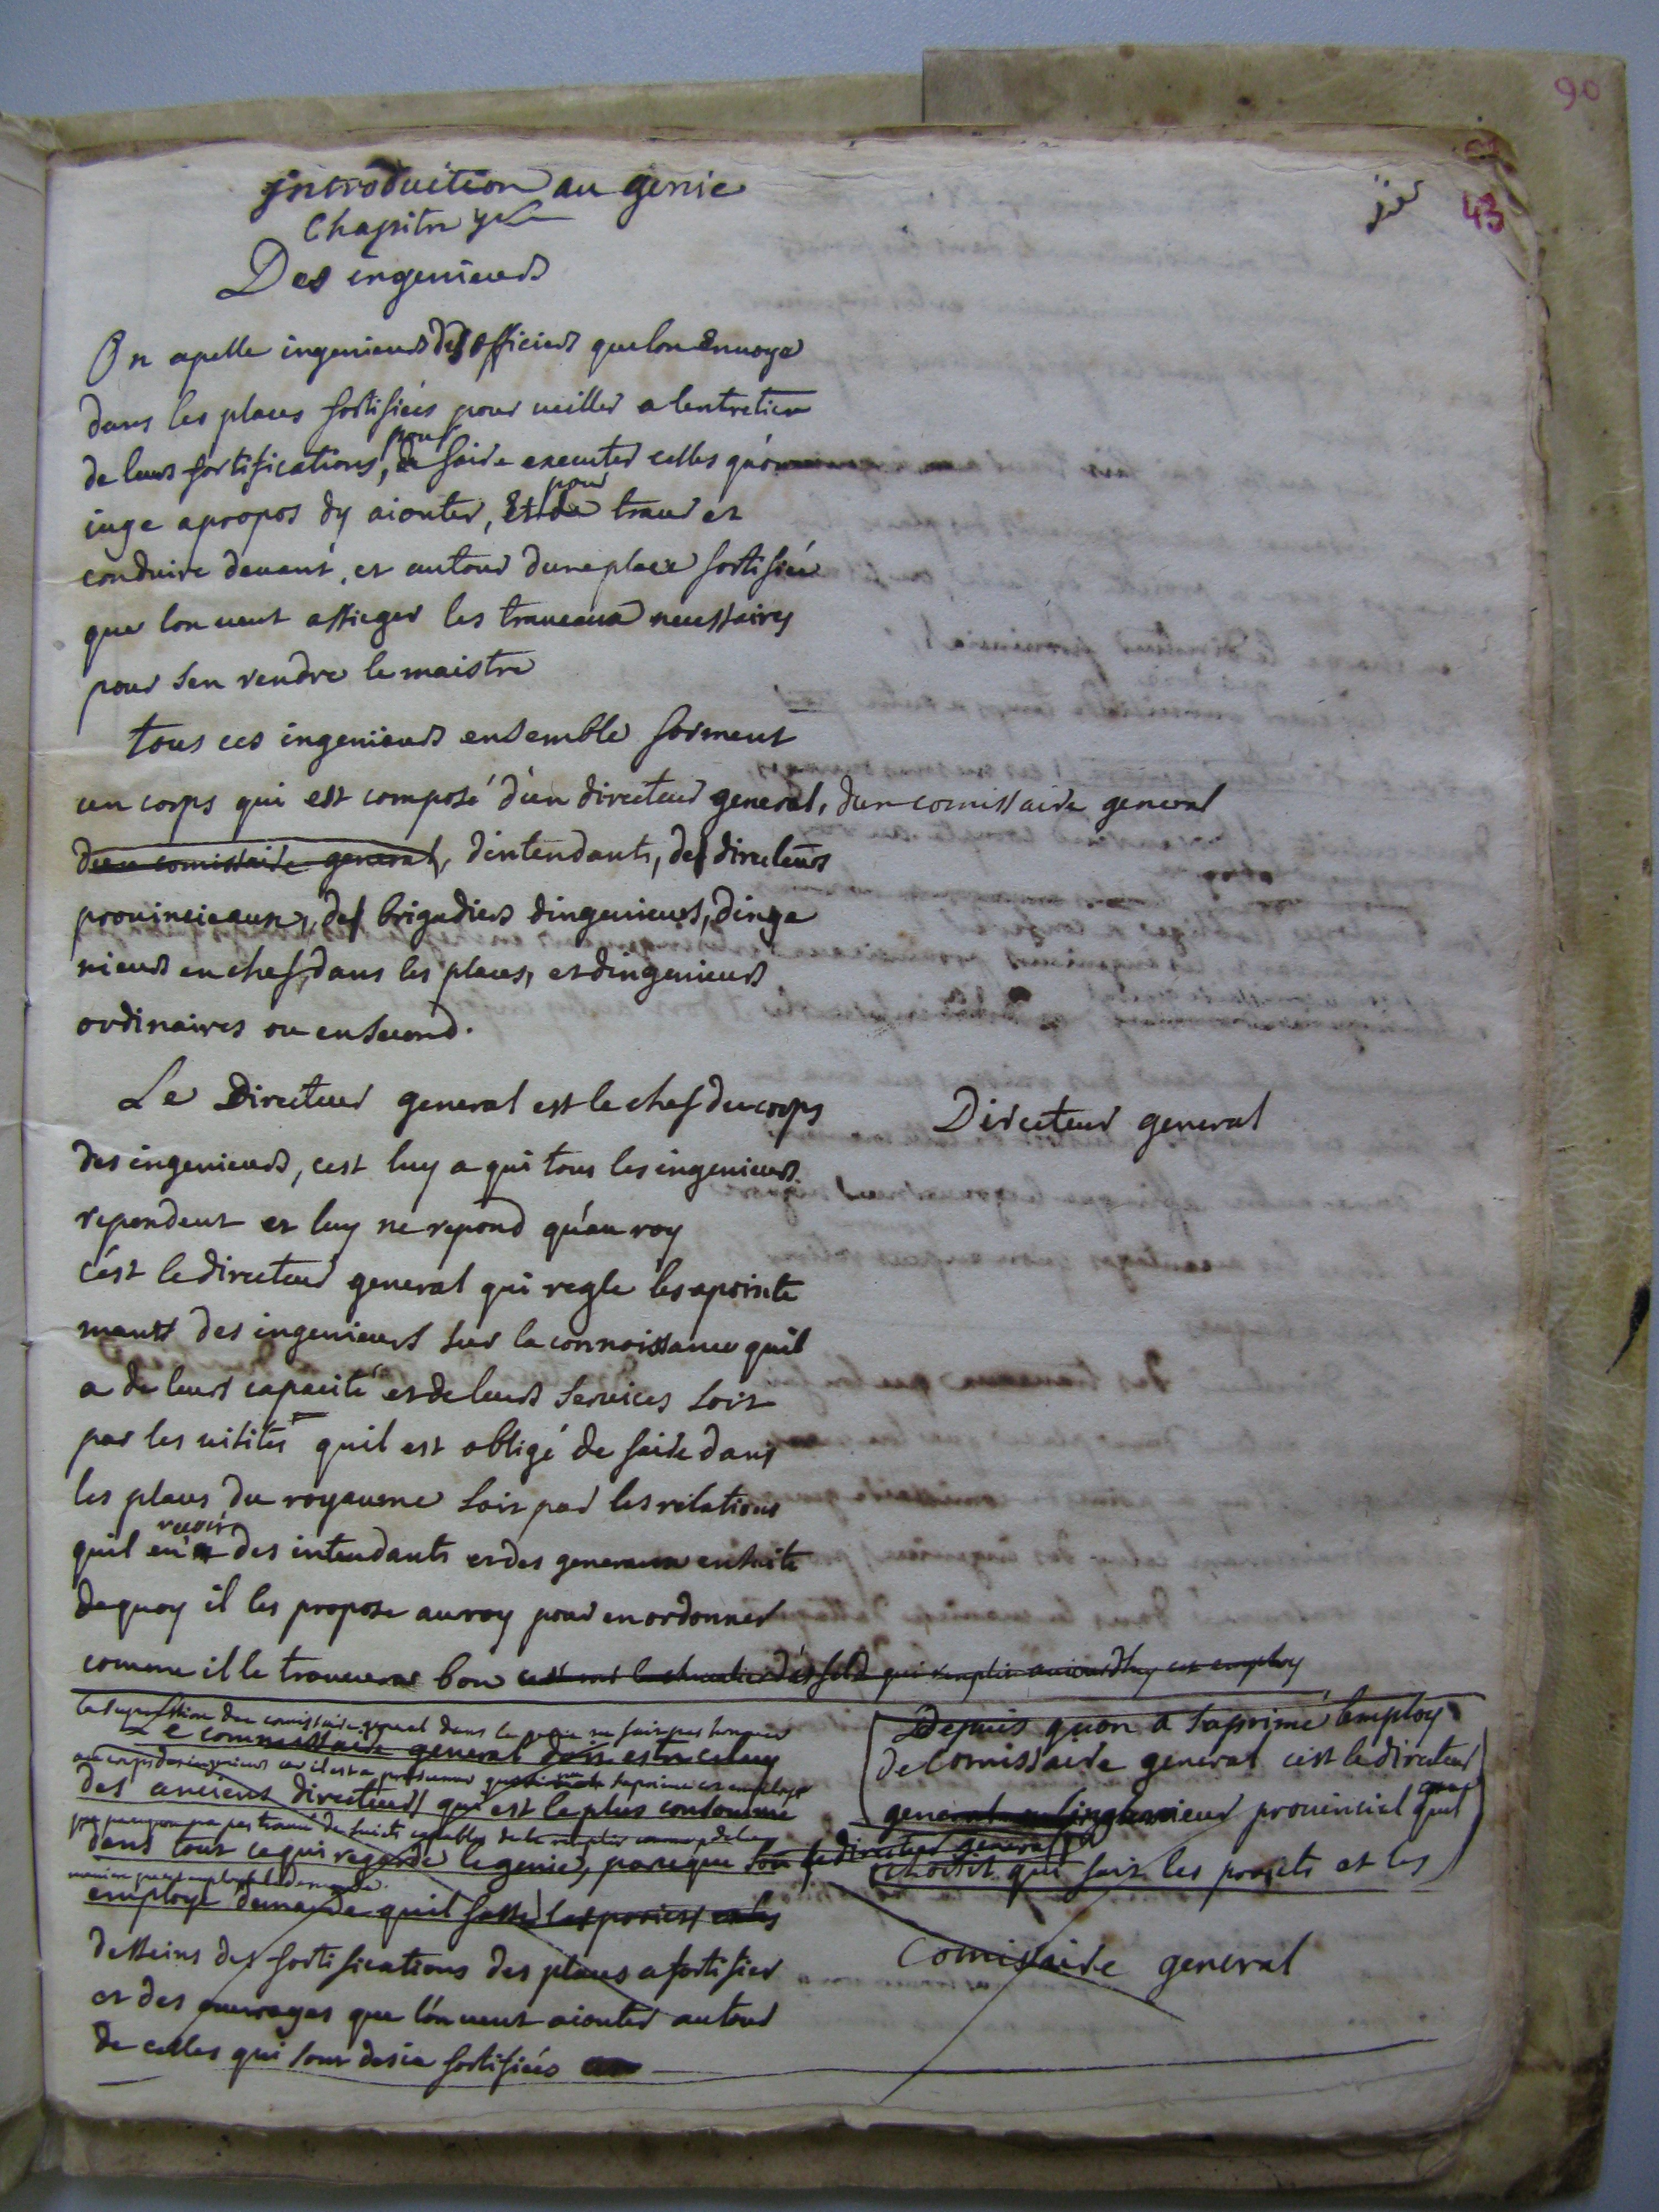 90
43
introduction au genie
Chapitre
Des ingenieurs
On apelle ingenieurs des officiers que lon Envoye
dans les places fortifiées pour veiller a lentretien
pour
de leurs fortifications, de faire executer celles qu'on
pour
iuge apropos dy aiouter, Et de tracer et
conduire devant, et autour dune place fortifiée
que lon veut assieger les traveaux necessaires
pour sen rendre le maistre
tous ces ingenieurs ensemble forment
un corps qui est composé d'un directeur general, dun comissaire general
dun comissaire general, dintendants, de directeurs
provincieaux, de brigadiers dingenieurs, dinge
nieurs en chef, dans les places, et dingenieurs
ordinaires ou en second.
Le Directeur general est le chef du corps
Directeur general
des ingenieurs, cest luy a qui tous les ingenieurs
repondent et luy ne repond qu'au roy
c'est le directeur general qui regle les apointe
ments des ingenieurs sur la connoissance quil
a de leurs capacité et de leurs services soit
par les visites quil est obligé de faire dans
les places du royaume soit par les relations
reçoit
quil en a des intendants et des generaux ensuite
dequoy il les propose au roy pour en ordonner
comme il le trouvera bon cest le chevalier d'asfeld qui remplit aujourdhuy cet employ
la supression du comissaire general dans le genie ne fait pas honneur
Le commissaire general doit estre celuy
au corps des ingenieurs car il est a presumer suprimé cet employ
des anciens directeurs qui est le plus consommé
trouvé de suiets capables de le remplir comme de la
dans tout ce qui regarde le genie, parceque son
maniere que cet employ le demande
employ demande quil fasse les proiets et les
desseins des fortifications des places a fortifier
et des ouvrages que l'on veut aiouter autour
de celles qui sont desia fortifiées
Depuis quon a suprimé lemploy
de Comissaire general cest le directeur
general ou lingenieur provincial quil
le directeur general
choisit qui fait les projets et les
Comissaire general